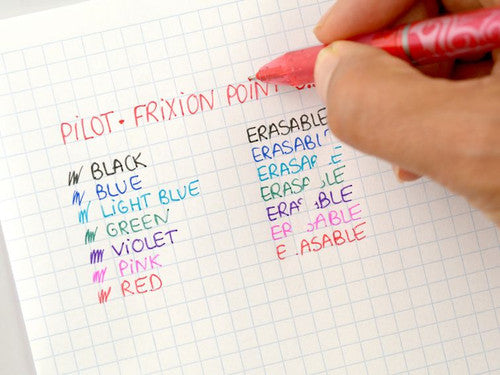 PILOT • FRIXION POINT
BLACK
BLUE
LIGHT BLUE
GREEN
VIOLET
PINK
RED
ERASABLE
ERASABL
ERASAB LE
ERASA LE
ERAS BLE
ER ABLE
E ASABLE